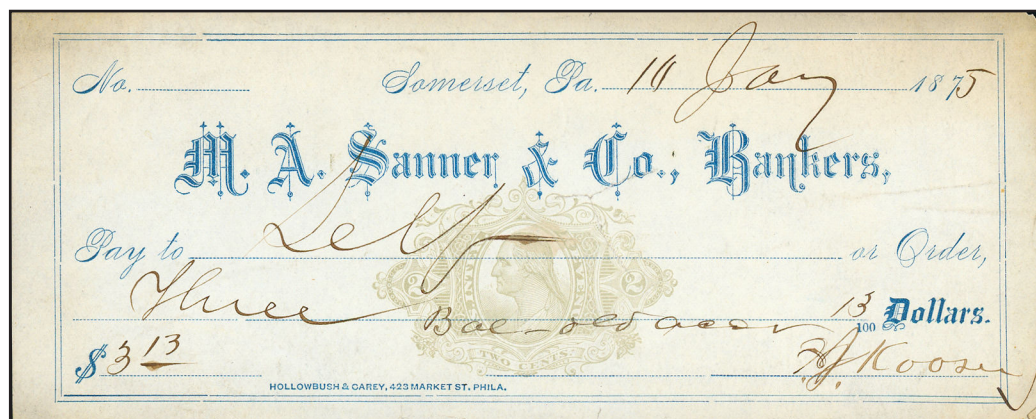 No. Somerset, Pa. 11 Jany 1875
M. A. Sanner & Co., Bankers,
Pay to Self or Order,
Three 13/100 Dollars.
$3 13 Koose
HOLLOWBUSH & CAREY, 423 MARKET ST. PHILA.
TWO CENTS